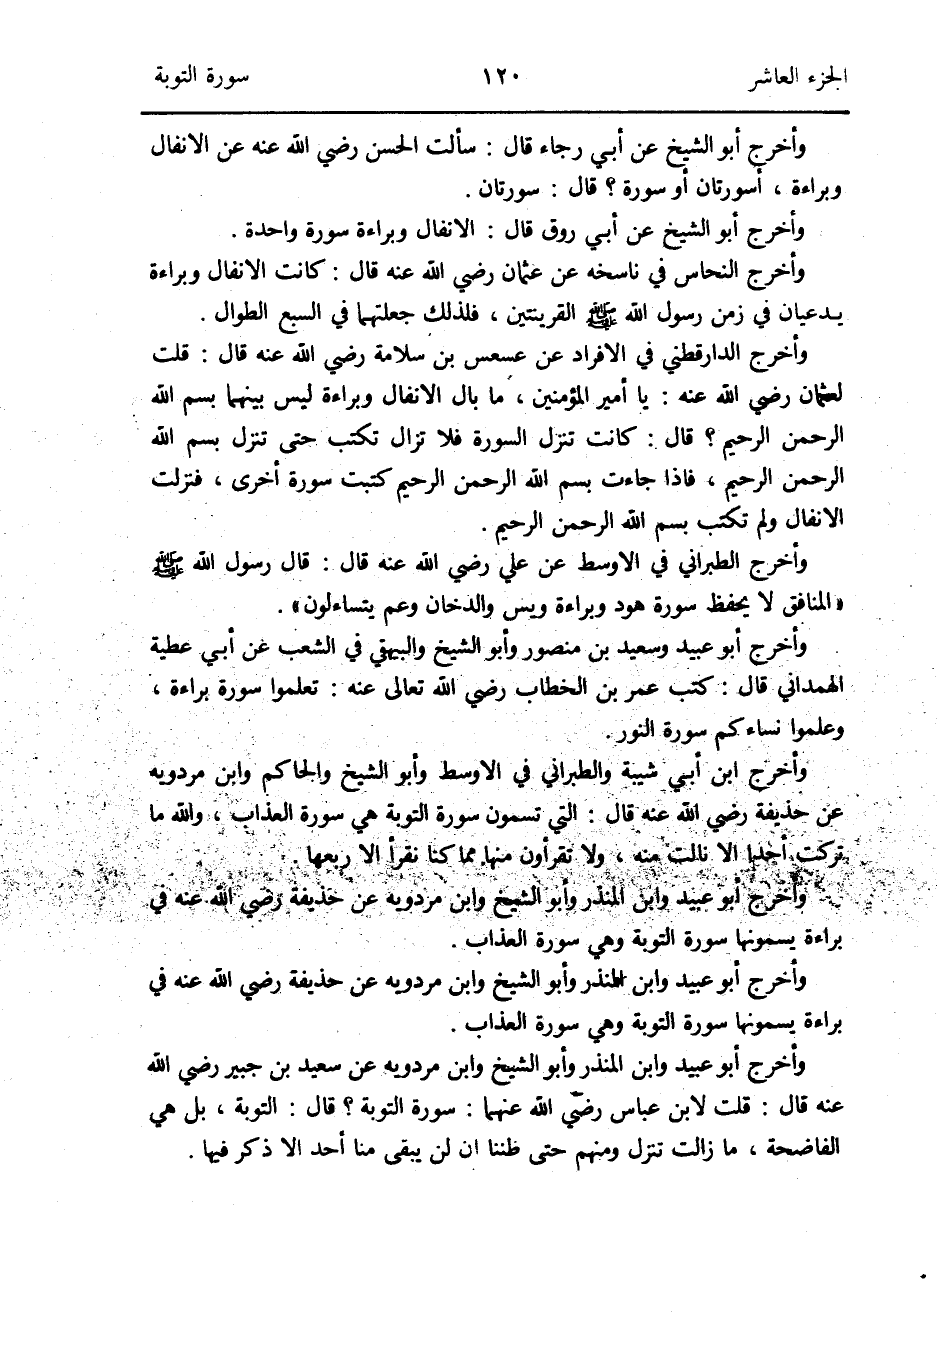 الجزء العاشر ١٢٠ سورة التوبة
وأخرج أبو الشيخ عن أبي رجاء قال : سألت الحسن رضي الله عنه عن الانفال
وبراءة ، أسورتان أو سورة ؟ قال : سورتان .
وأخرج أبو الشيخ عن أبي روق قال : الانفال وبراءة سورة واحدة .
وأخرج النحاس في ناسخه عن عثمان رضي الله عنه قال : كانت الانفال وبراءة
يدعيان في زمن رسول الله ﷺ القرينتين ، فلذلك جعلتهما في السبع الطوال .
وأخرج الدارقطني في الافراد عن عسعس بن سلامة رضي الله عنه قال : قلت
لعثمان رضي الله عنه : يا أمير المؤمنين ، ما بال الانفال وبراءة ليس بينهما بسم الله
الرحمن الرحيم ؟ قال : كانت تنزل السورة فلا تزال تكتب حتى تنزل بسم الله
الرحمن الرحيم ، فاذا جاءت بسم الله الرحمن الرحيم كتبت سورة أخرى ، فنزلت
الانفال ولم تكتب بسم الله الرحمن الرحيم .
وأخرج الطبراني في الاوسط عن علي رضي الله عنه قال : قال رسول الله ﷺ
«المنافق لا يحفظ سورة هود وبراءة ويس والدخان وعم يتساءلون» .
وأخرج أبو عبيد وسعيد بن منصور وأبو الشيخ والبيهقي في الشعب عن أبي عطية
الهمداني قال : كتب عمر بن الخطاب رضي الله تعالى عنه : تعلموا سورة براءة ،
وعلموا نساءكم سورة النور .
وأخرج ابن أبي شيبة والطبراني في الاوسط وأبو الشيخ والحاكم وابن مردويه
عن حذيفة رضي الله عنه قال : التي تسمون سورة التوبة هي سورة العذاب ، والله ما
تركت أحدا الا نالت منه ، ولا تقرأون منها مما كنا نقرأ الا ربعها .
وأخرج أبو عبيد وابن المنذر وأبو الشيخ وابن مردويه عن حذيفة رضي الله عنه في
براءة يسمونها سورة التوبة وهي سورة العذاب .
وأخرج أبو عبيد وابن المنذر وأبو الشيخ وابن مردويه عن حذيفة رضي الله عنه في
براءة يسمونها سورة التوبة وهي سورة العذاب .
وأخرج أبو عبيد وابن المنذر وأبو الشيخ وابن مردويه عن سعيد بن جبير رضي الله
عنه قال : قلت لابن عباس رضي الله عنهما : سورة التوبة ؟ قال : التوبة ، بل هي
الفاضحة ، ما زالت تنزل ومنهم حتى ظننا ان لن يبقى منا أحد الا ذكر فيها .